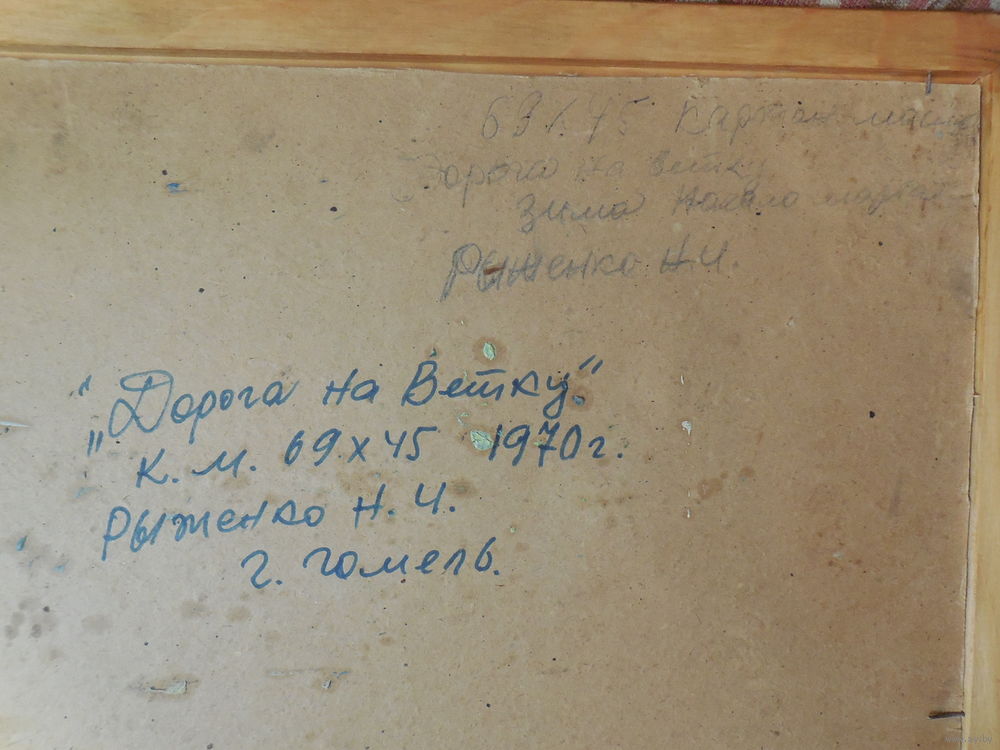 69 х 45 картон масло
Дорога на ветку
Зима начало марта
Рыженко Н.Ч.
"Дорога на Ветку".
"
К. М. 69 х 45 1970 г.
Рыженко Н. Ч.
г. гомель.